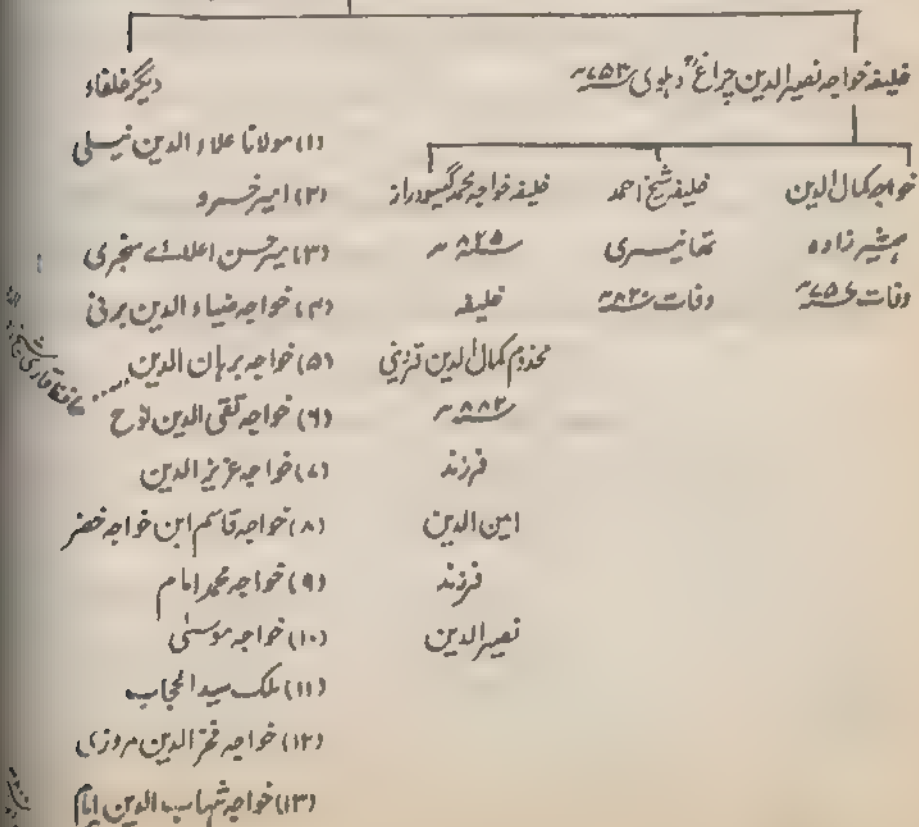 خلیفہ خواجہ نصیر الدین چراغؒ دہلوی ۷۵۳ھ
دیگر خلفاء
خواجہ کمال الدین
ہمشیر زادہ
وفات ۷۵۶ھ
خلیفہ شیخ احمد
تھانیسری
وفات ۸۲۰ھ
خلیفہ خواجہ محمد گیسودراز
۸۲۵ھ
خلیفہ
مخدوم کمال الدین قزوینی
۸۸۲ھ
فرزند
امین الدین
فرزند
نصیر الدین
(۱) مولانا علاء الدین نیسلی
(۲) امیر خسرو
(۳) میر حسن اعلائے سنجری
(۴) خواجہ ضیاء الدین برنی
(۵) خواجہ برہان الدین
(۶) خواجہ تقی الدین نوح
(۷) خواجہ عزیز الدین
(۸) خواجہ قاسم ابن خواجہ خضر
(۹) خواجہ محمد امام
(۱۰) خواجہ موسیٰ
(۱۱) ملک سید الحجاب
(۱۲) خواجہ فخر الدین مروزی
(۱۳) خواجہ شہاب الدین امام